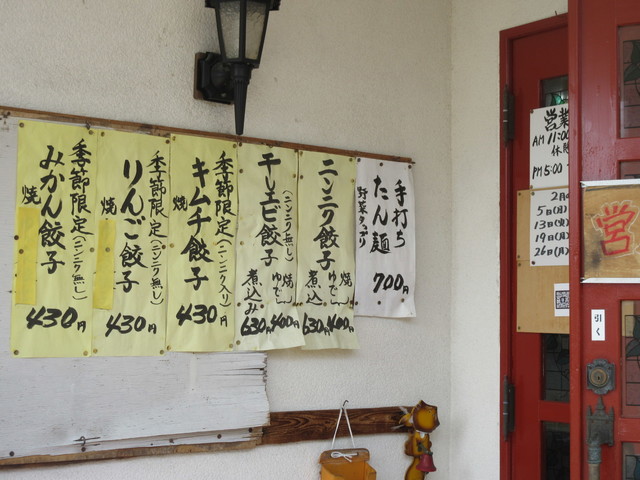 手打ち
たん麺
野菜タップリ
700円
ニンニク餃子
焼 ゆで 400円
煮込 630円
干しエビ餃子
(ニンニク無し)
焼 ゆで 400円
煮込み 630円
季節限定(ニンニク入り)
キムチ餃子
焼
430円
季節限定(ニンニク無し)
りんご餃子
焼
430円
季節限定(ニンニク無し)
みかん餃子
焼
430円
営業
AM 11:00
PM 5:00
2月
5日(日)
13日(火)
19日(月)
26日(月)
営
引く